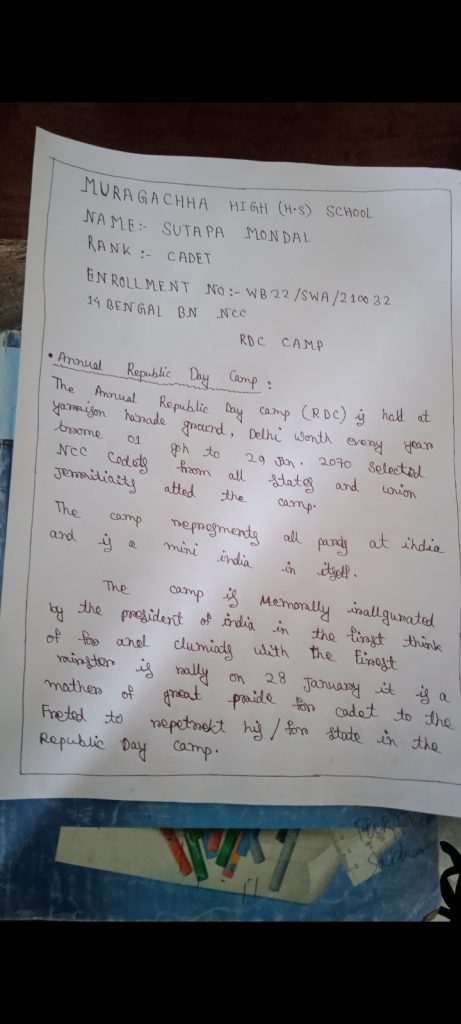 MURAGACHHA HIGH (H.S) SCHOOL
NAME:- SUTAPA MONDAL
RANK :- CADET
ENROLLMENT NO:- WB22/SWA/210032
14 BENGAL BN NCC
RDC CAMP
• Annual Republic Day Camp :
The Annual Republic Day camp (RDC) is hald at
ground, Delhi worth every year
01 to 29 Jan. 2070 selected
NCC Cadets from all states and union
atted the camp.
The camp all pards at india
and is a mini india in itself.
The camp is Memorally inallgurated
by the president of india in the first think
of foo and with the Finest
is rally on 28 January it is a
mather of great praide for cadet to the
Freted to his / for state in the
Republic Day camp.